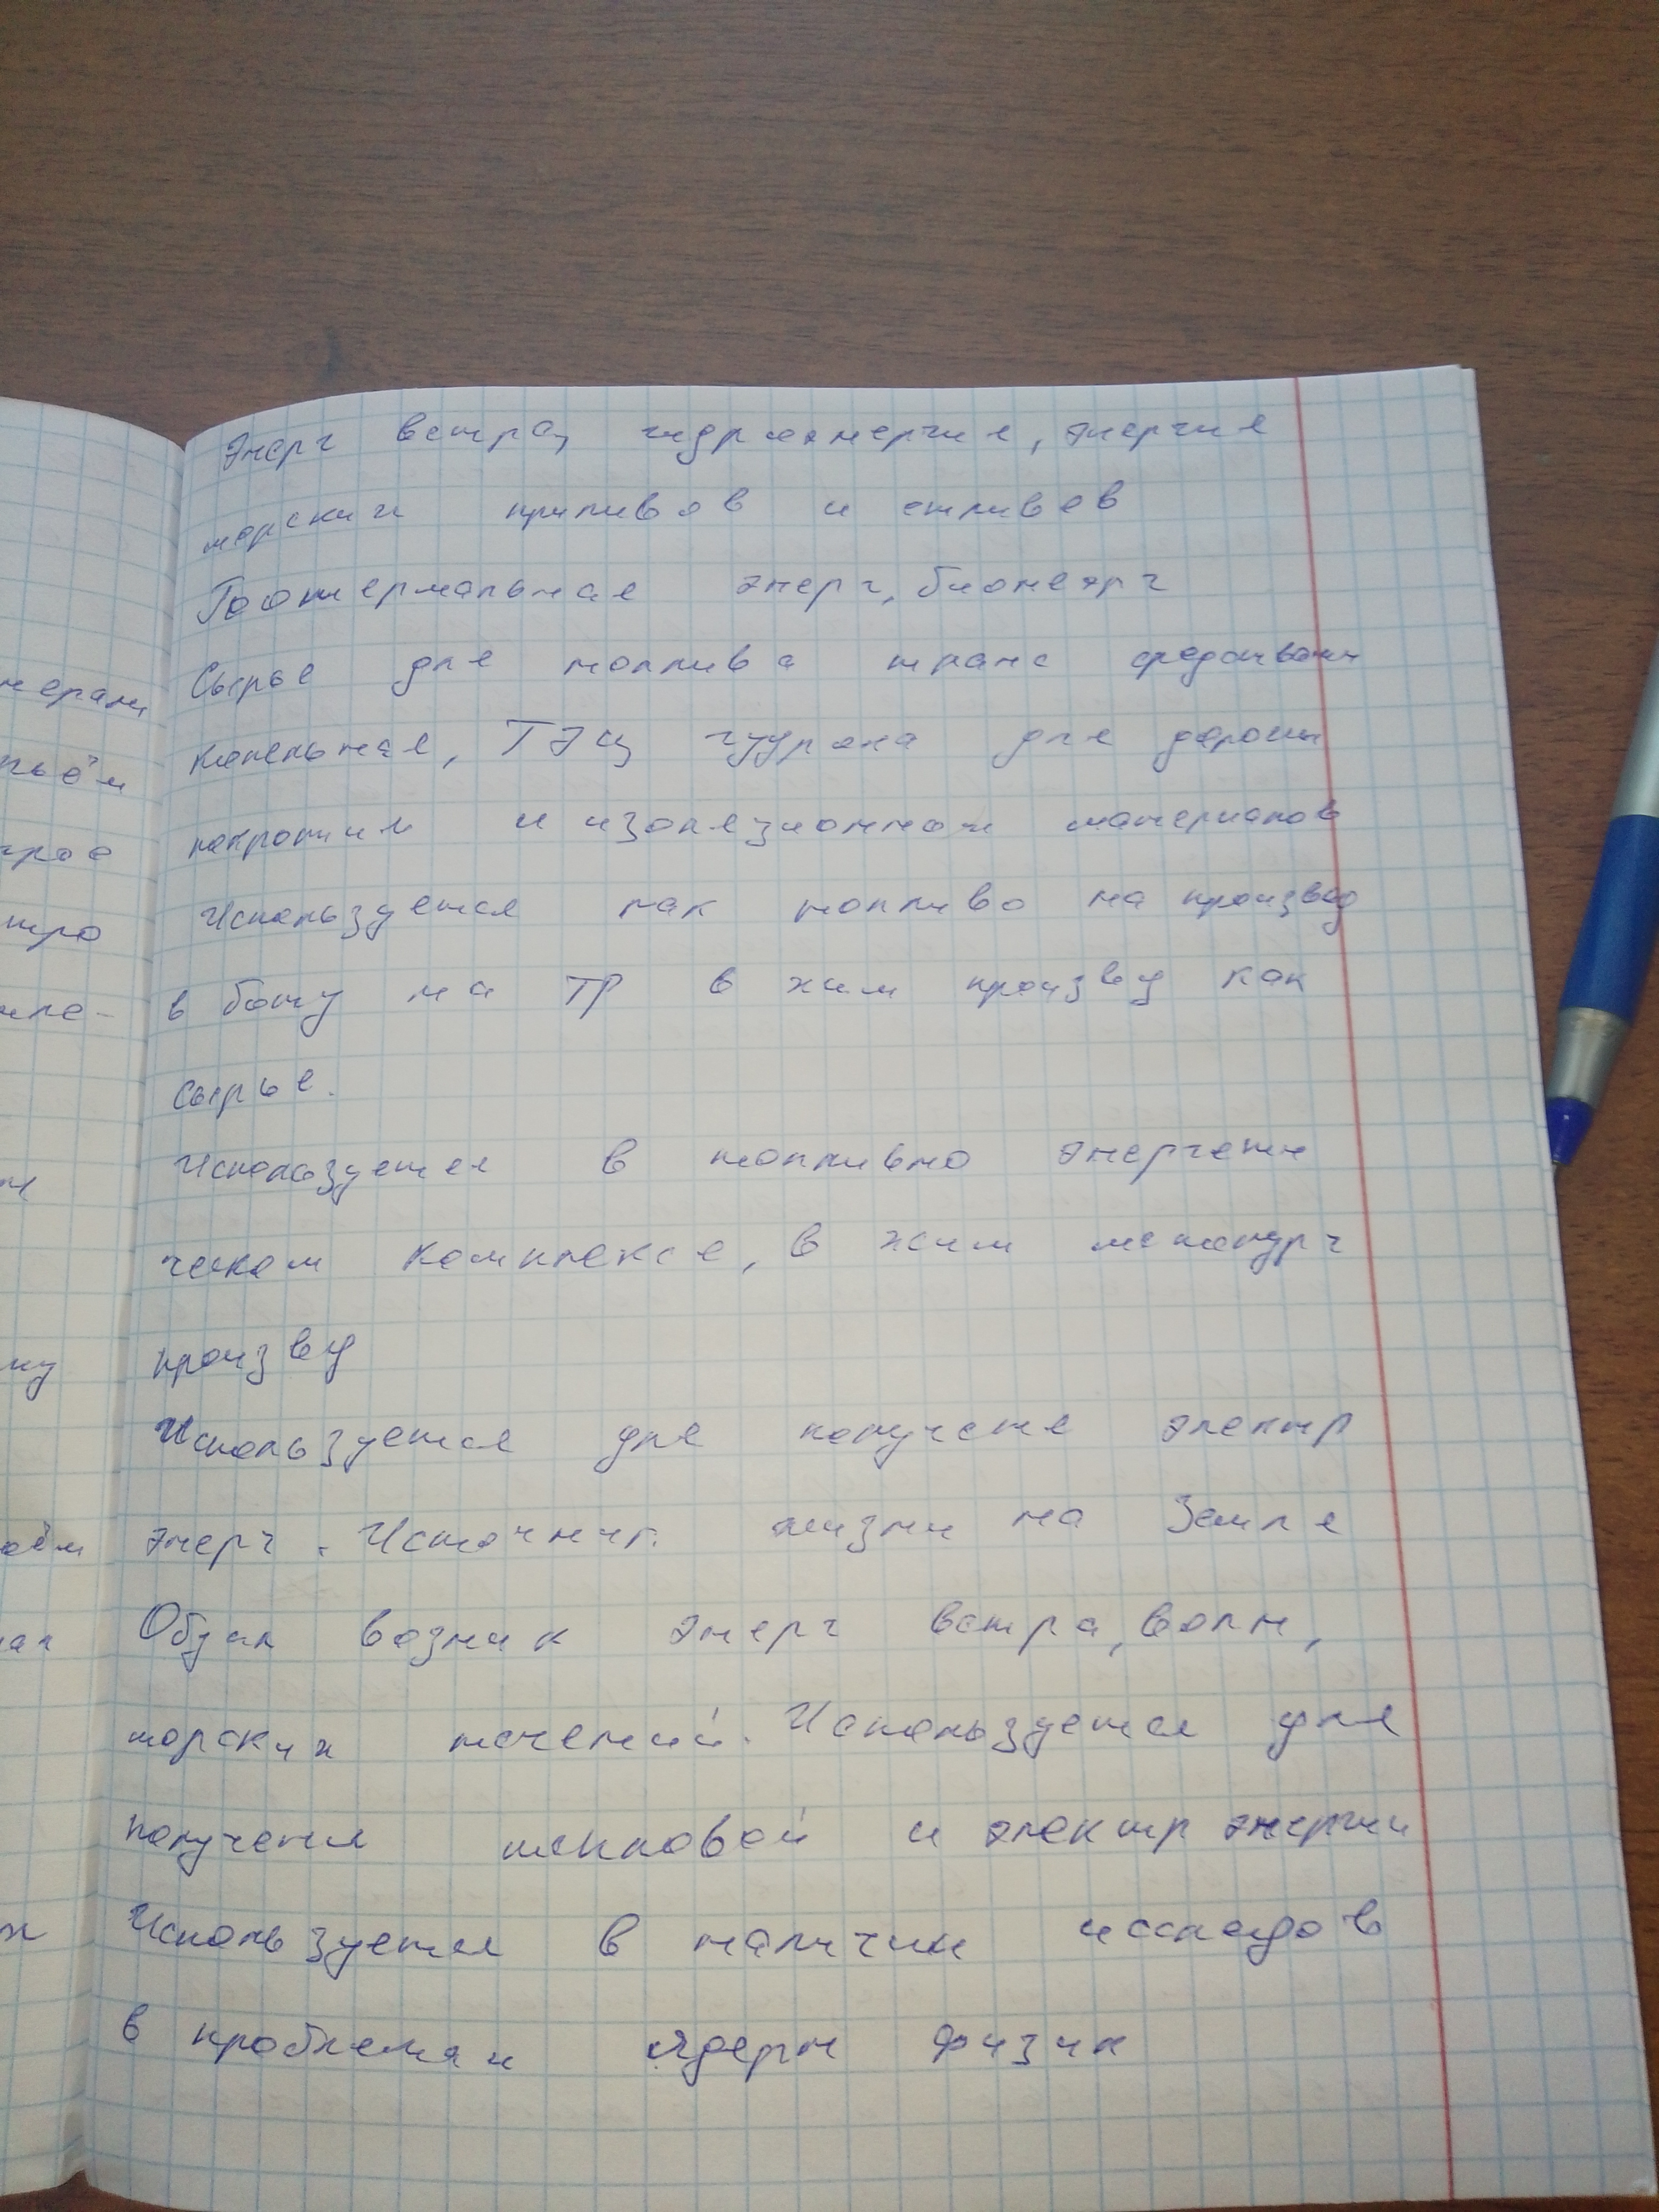 Энерг ветра, гидроэнергия, энергия
морских приливов и отливов
Геотермальная энерг, биоэнерг
Сырье для топлива транс средствам
Котельная, ТЭЦ гудрона для дорожн
покрытия и изоляционных материалов
Используется как топливо на производ
в быту на ТР в хим произву как
сырье.
Используется в топливно энергети
ческом комплексе, в хим металург
произву
Используется для получения электр
энерг. Источник жизни на Земле
Обуал возник энерг ветра, волн,
морских течений. Используется для
получения тепловой и электр энергии
Используется в исследов
в проблемах ядерн физик
мерам
ку